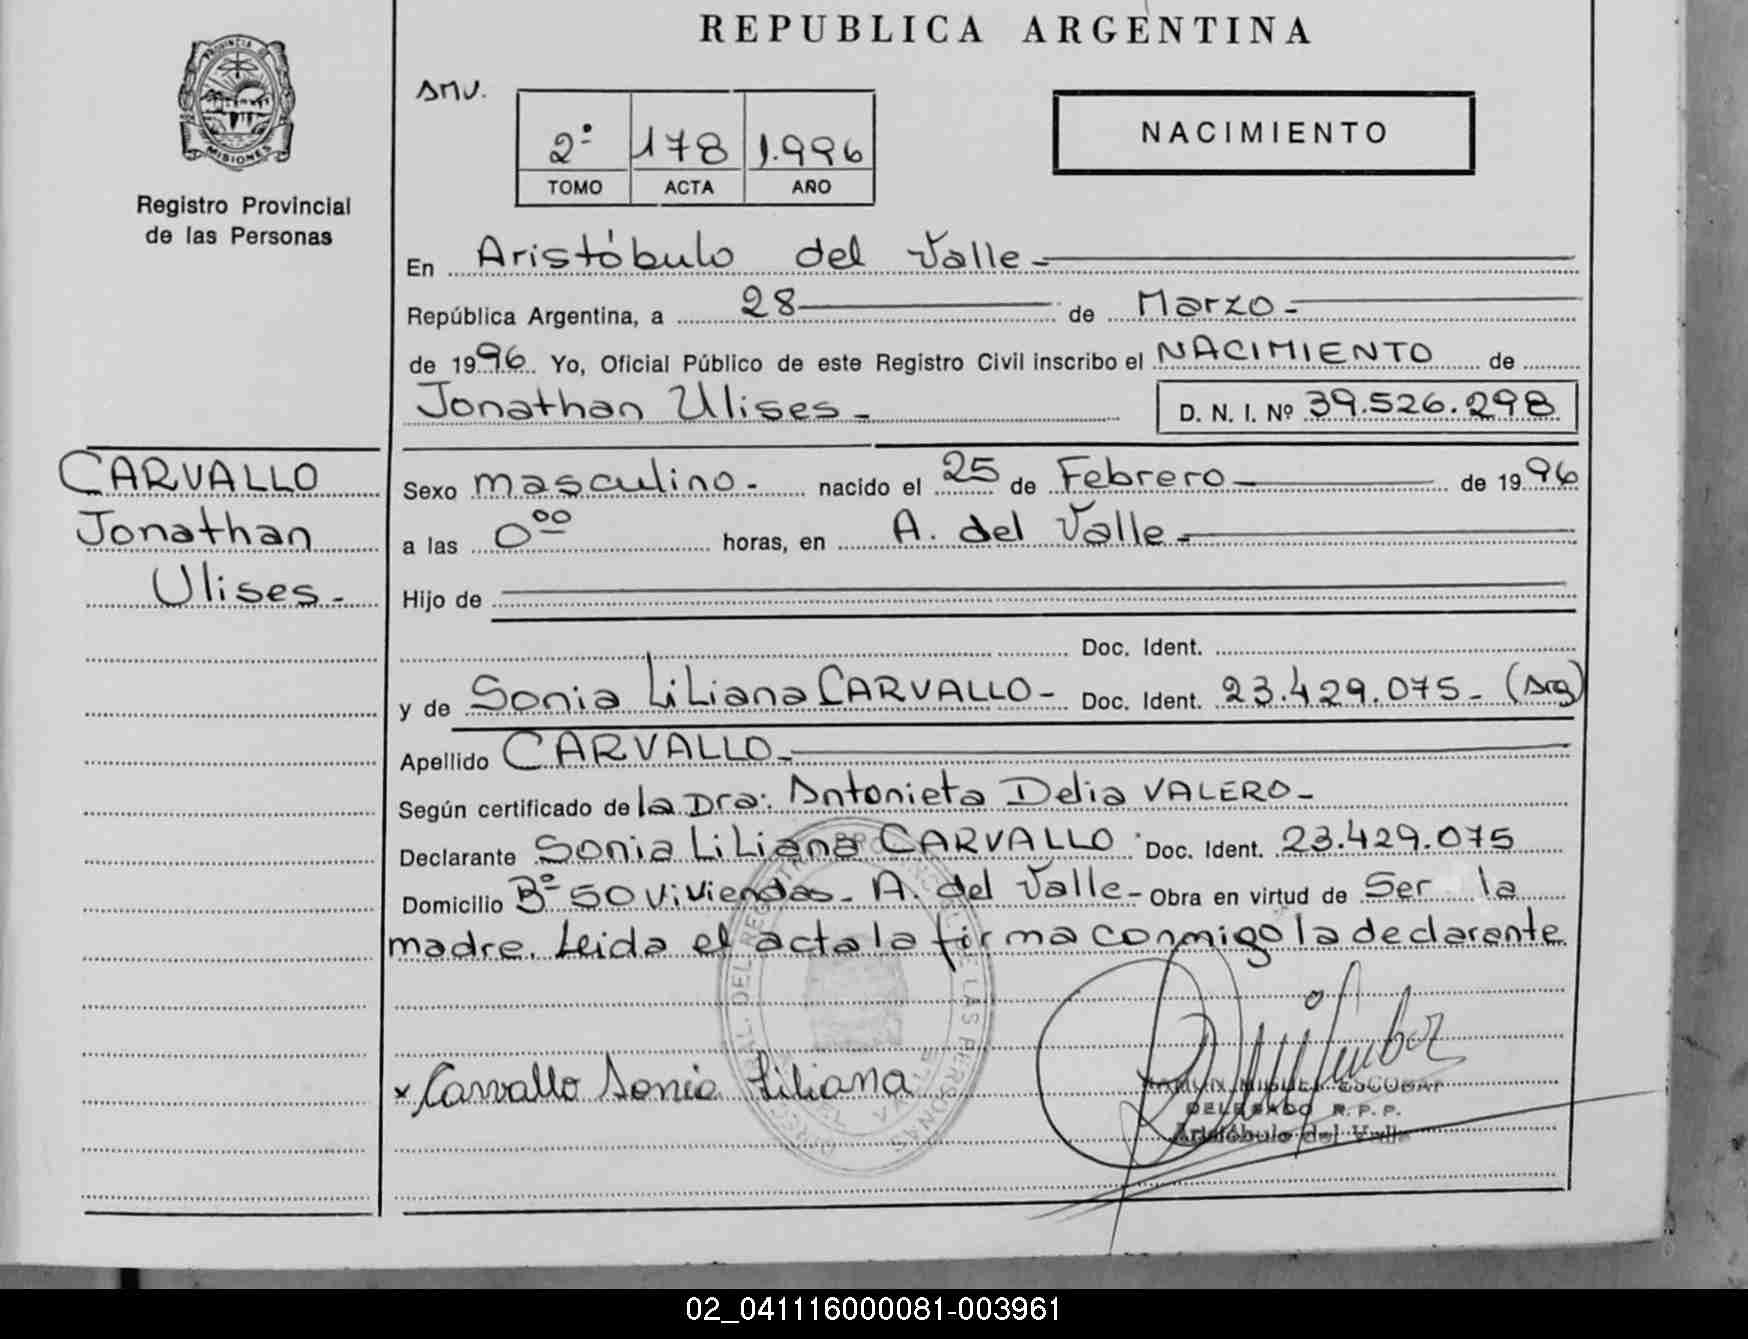 REPUBLICA ARGENTINA
PROVINCIA DE
MISIONES
Registro Provincial
de las Personas
AMV.
2º 178 1.996
TOMO ACTA AÑO
NACIMIENTO
En Aristóbulo del Valle-
República Argentina, a 28 de Marzo-
de 1996. Yo, Oficial Público de este Registro Civil inscribo el NACIMIENTO de
Jonathan Ulises- D. N. I. Nº 39.526.298
CARVALLO
Jonathan
Ulises-
Sexo masculino- nacido el 25 de Febrero de 1996
a las 0⁰⁰ horas, en A. del Valle-
Hijo de
Doc. Ident.
y de Sonia Liliana CARVALLO- Doc. Ident. 23.429.075- (Arg)
Apellido CARVALLO-
Según certificado de la Dra: Antonieta Delia VALERO-
Declarante Sonia Liliana CARVALLO Doc. Ident. 23.429.075
Domicilio Bº 50 viviendas- A. del Valle- Obra en virtud de Ser la
madre. Leida el acta la firma conmigo la declarante
x Carvallo Sonia Liliana
RAMON MIGUEL ESCOBAR
DELEGADO R. P. P.
Aristóbulo del Valle
02_041116000081-003961